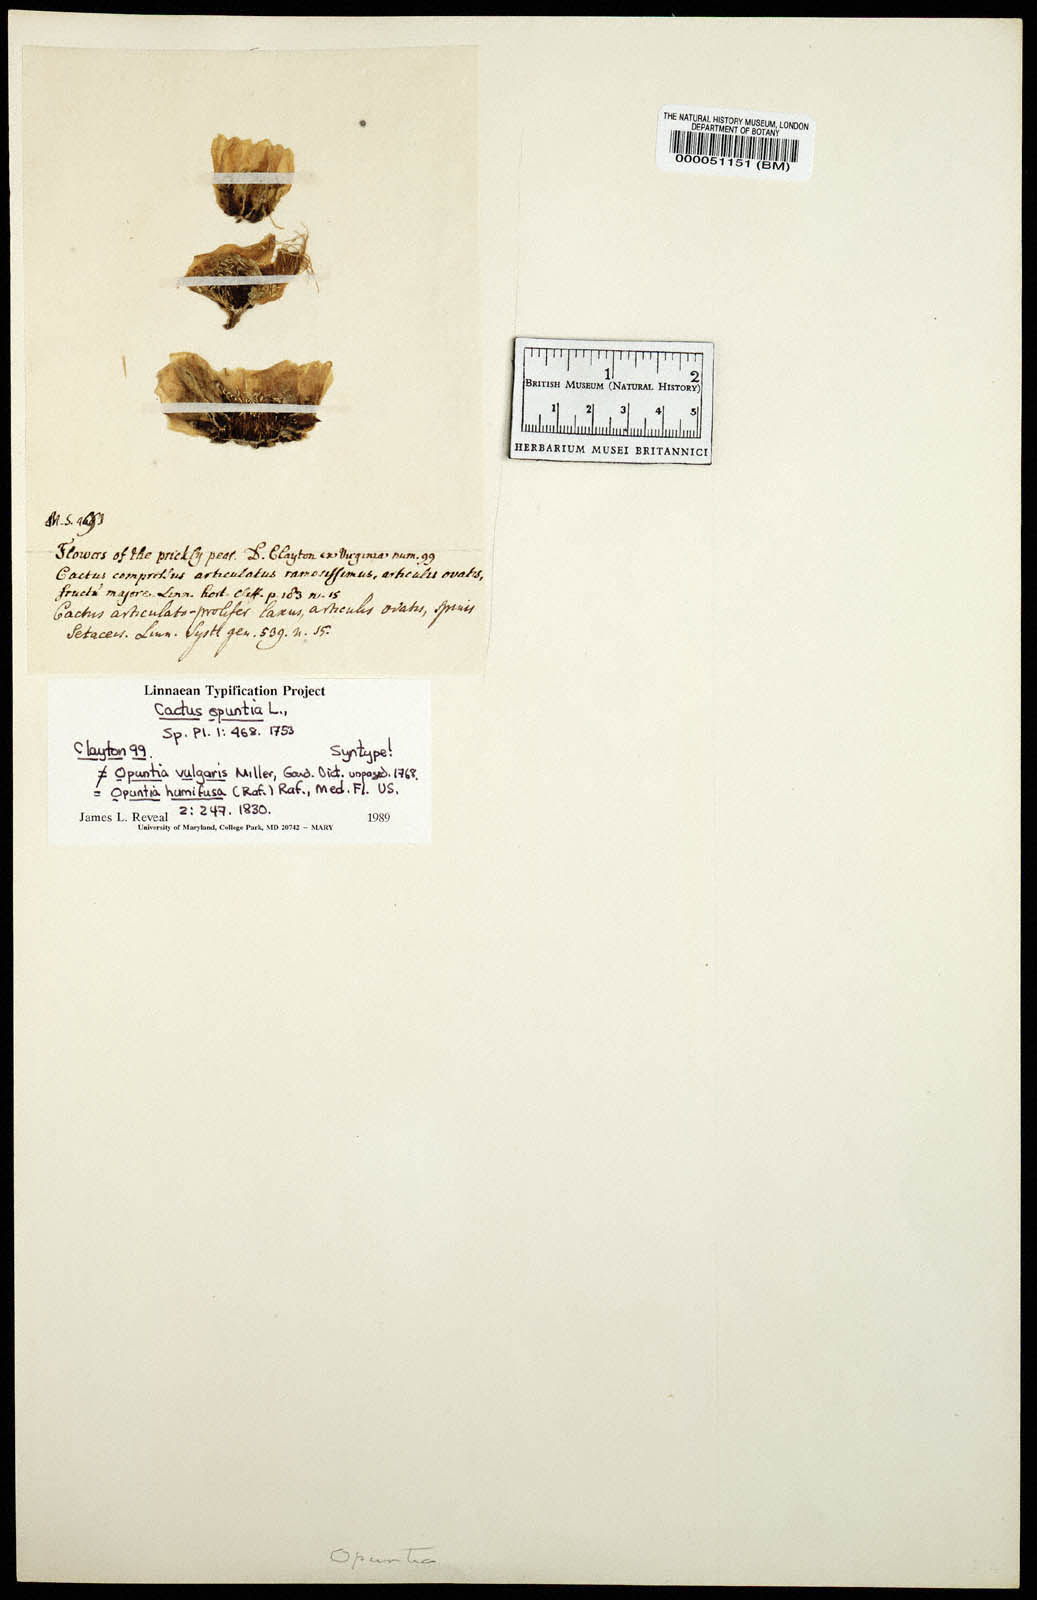 THE NATURAL HISTORY MUSEUM, LONDON
DEPARTMENT OF BOTANY
000051151 (BM)
1 2
BRITISH MUSEUM (NATURAL HISTORY)
1 2 3 4 5
HERBARIUM MUSEI BRITANNICI
M.S.
Flowers of the prickly pear. D. Clayton ex Virginia num. 99
Cactus compressus articulatus ramosissimus, articulis ovatis,
fructu majore. Linn. hort. Cliff. p. 183 n. 15
Cactus articulato-prolifer laxus, articulis ovatis, spinis
setaceis. Linn. Syst gen. 539. n. 15.
Linnaean Typification Project
Cactus opuntia L.,
Sp. Pl. 1: 468. 1753
Clayton 99. Syntype!
≠ Opuntia vulgaris Miller, Gard. Dict. unpaged. 1768.
= Opuntia humifusa (Raf.) Raf., Med. Fl. US.
2: 247. 1830.
James L. Reveal 1989
University of Maryland, College Park, MD 20742 – MARY
Opuntia